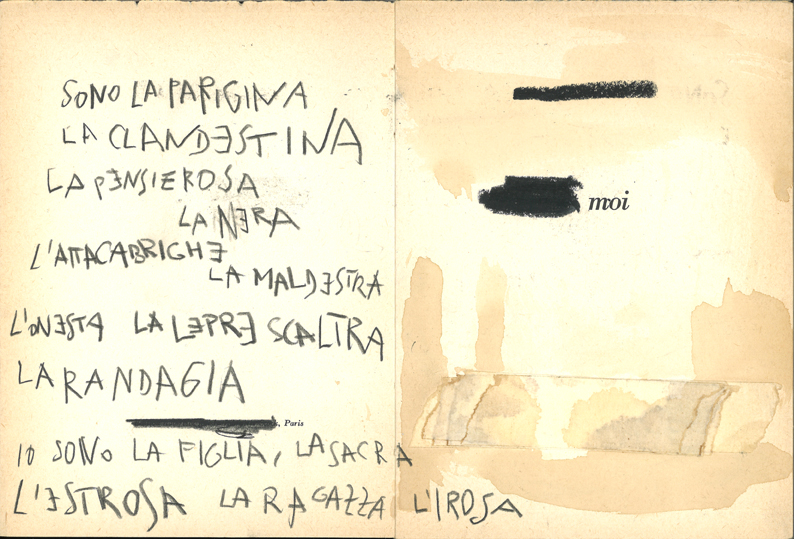 SONO LA PARIGINA
LA CLANDESTINA
LA PENSIEROSA
LA NERA
L'ATTACABRIGHE
LA MALDESTRA
L'ONESTA LA LEPRE SCALTRA
LA RANDAGIA
, Paris
IO SONO LA FIGLIA, LA SACRA
L'ESTROSA LA RAGAZZA L'IROSA
moi